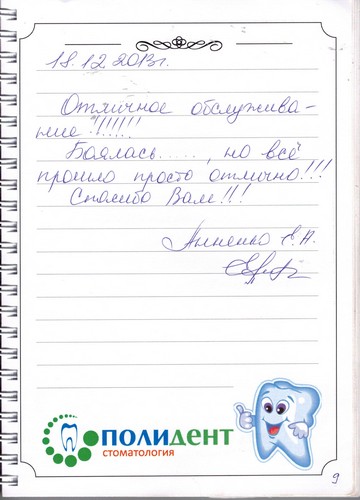 18.12.2013г.
Отличное обслужива-
ние!!!!!!!
Боялась......, но всё
прошло просто отлично!!!
Спасибо Вам!!!
Анненко Е.А.
ПОЛИДЕНТ
СТОМАТОЛОГИЯ
9